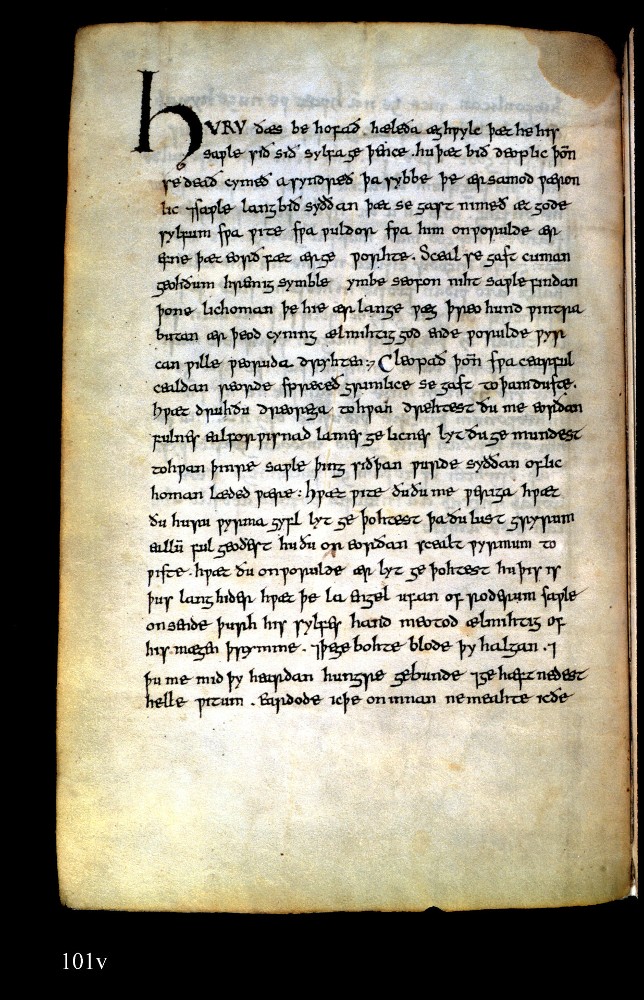 HVRV ðæs be hofað. hæleða æghƿylc þæt he his
saƿle sið sið sylfa ge þence. hu þæt bið deoplic þoñ
se deað cymeð asyndreð þa sybbe þe ær samod ƿæron
lic ⁊saƿle lang bið syððan þæt se gast nimeð æt gode
sylfum sƿa ƿite sƿa ƿuldor sƿa him onƿorulde ær
efne þæt eorð fæt ær ge ƿorhte. Sceal se gast cuman
geohðum hremig symble ymbe seofon niht saƿle findan
þone lichoman þe hie ær lange ƿæg þreo hund ƿintra
butan ær þeod cyning ælmihtig god ende ƿorulde ƿyr
can ƿille ƿeoruda dryhten:⁊ Cleopað þoñ sƿa cearful
cealdan reorde spreceð grimlice se gast to þam duste.
hƿæt druhðu dreorega tohƿan drehtest ðu me eorðan
fulnes eal for ƿisnad lames ge licnes lyt ðu ge mundest
tohƿan þinre saƿle þing siðþan ƿurde syððan of lic
homan læded ƿære: hƿæt ƿite ðu ðu me ƿeriga hƿæt
ðu huru ƿyrma gyfl lyt ge þohtest þa ðu lust gryrum
eallū ful geodest hu ðu on eorðan scealt ƿyrmum to
ƿiste. hƿæt ðu onƿorulde ær lyt ge þohtest hu þis is
þus lang hider hƿæt þe la engel ufan of roderum saƿle
onsende þurh his sylfes hand meotod ælmihtig of
his mægen þrymme. ⁊þe ge bohte blode þy halgan. ⁊
þu me mid þy heardan hungre gebunde ⁊ge hæft nedest
helle ƿitum. eardode icþe on innan ne meahte ic ðe
101v